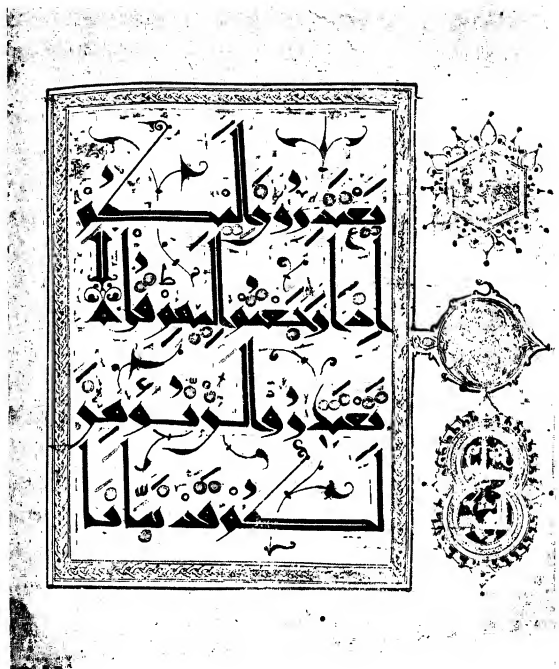 يَعْتَذِرُونَ إِلَيْكُمْ
إِذَا رَجَعْتُمْ إِلَيْهِمْ قُلْ لَا
تَعْتَذِرُوا لَنْ نُؤْمِنَ
لَكُمْ قَدْ نَبَّأَنَا